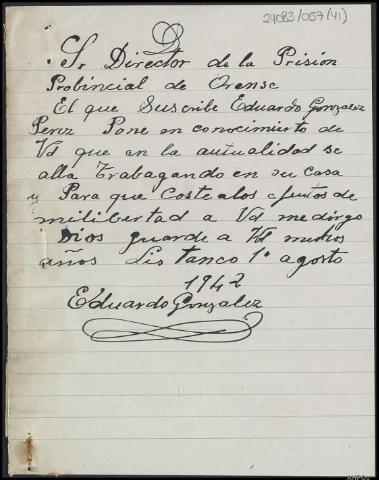 24083/057(41)
D
Sr Director de la Prisión
Probincial de Orense
El que Suscribe Eduardo Gonzalez
Perez Pone en conocimierto de
Vd que en la autualidad se
alla Trabagando en su casa
y Para que Coste alos efeutos de
milibertad a Vd medirgo
Dios guarde a Vd muchos
años Listanco 1º agosto
1942
Eduardo Gonzalez